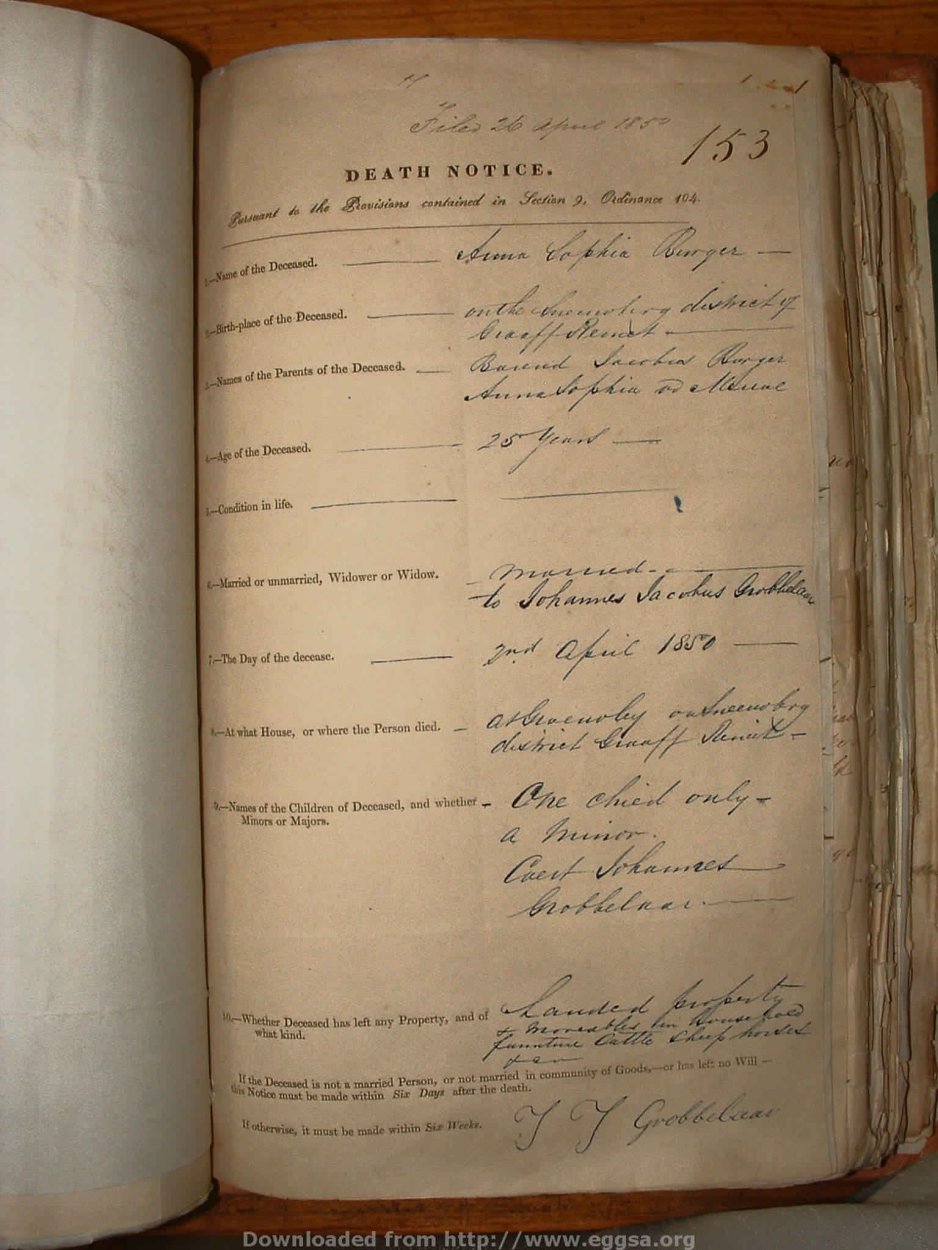 Filed 26 April 1850
153
DEATH NOTICE.
Pursuant to the Provisions contained in Section 9, Ordinance 104.
1.—Name of the Deceased. Anna Sophia Burger —
2.—Birth-place of the Deceased. on the Sneeuwberg district of
Graaff Reinet
3.—Names of the Parents of the Deceased. Barend Jacobus Burger
Anna Sophia
4.—Age of the Deceased. 25 Years —
5.—Condition in life.
6.—Married or unmarried, Widower or Widow. married
to Johannes Jacobus Grobbelaar
7.—The Day of the decease. 2nd April 1850 —
8.—At what House, or where the Person died. at on Sneeuwberg
district Graaff Reinet –
9.—Names of the Children of Deceased, and whether One child only –
Minors or Majors. a minor.
Coert Johannes
Grobbelaar.
10.—Whether Deceased has left any Property, and of Landed property
what kind. & moveables in household
furniture Cattle sheep horses
If the Deceased is not a married Person, or not married in community of Goods,—or has left no Will —
this Notice must be made within Six Days after the death.
If otherwise, it must be made within Six Weeks. J J Grobbelaar
Downloaded from http://www.eggsa.org